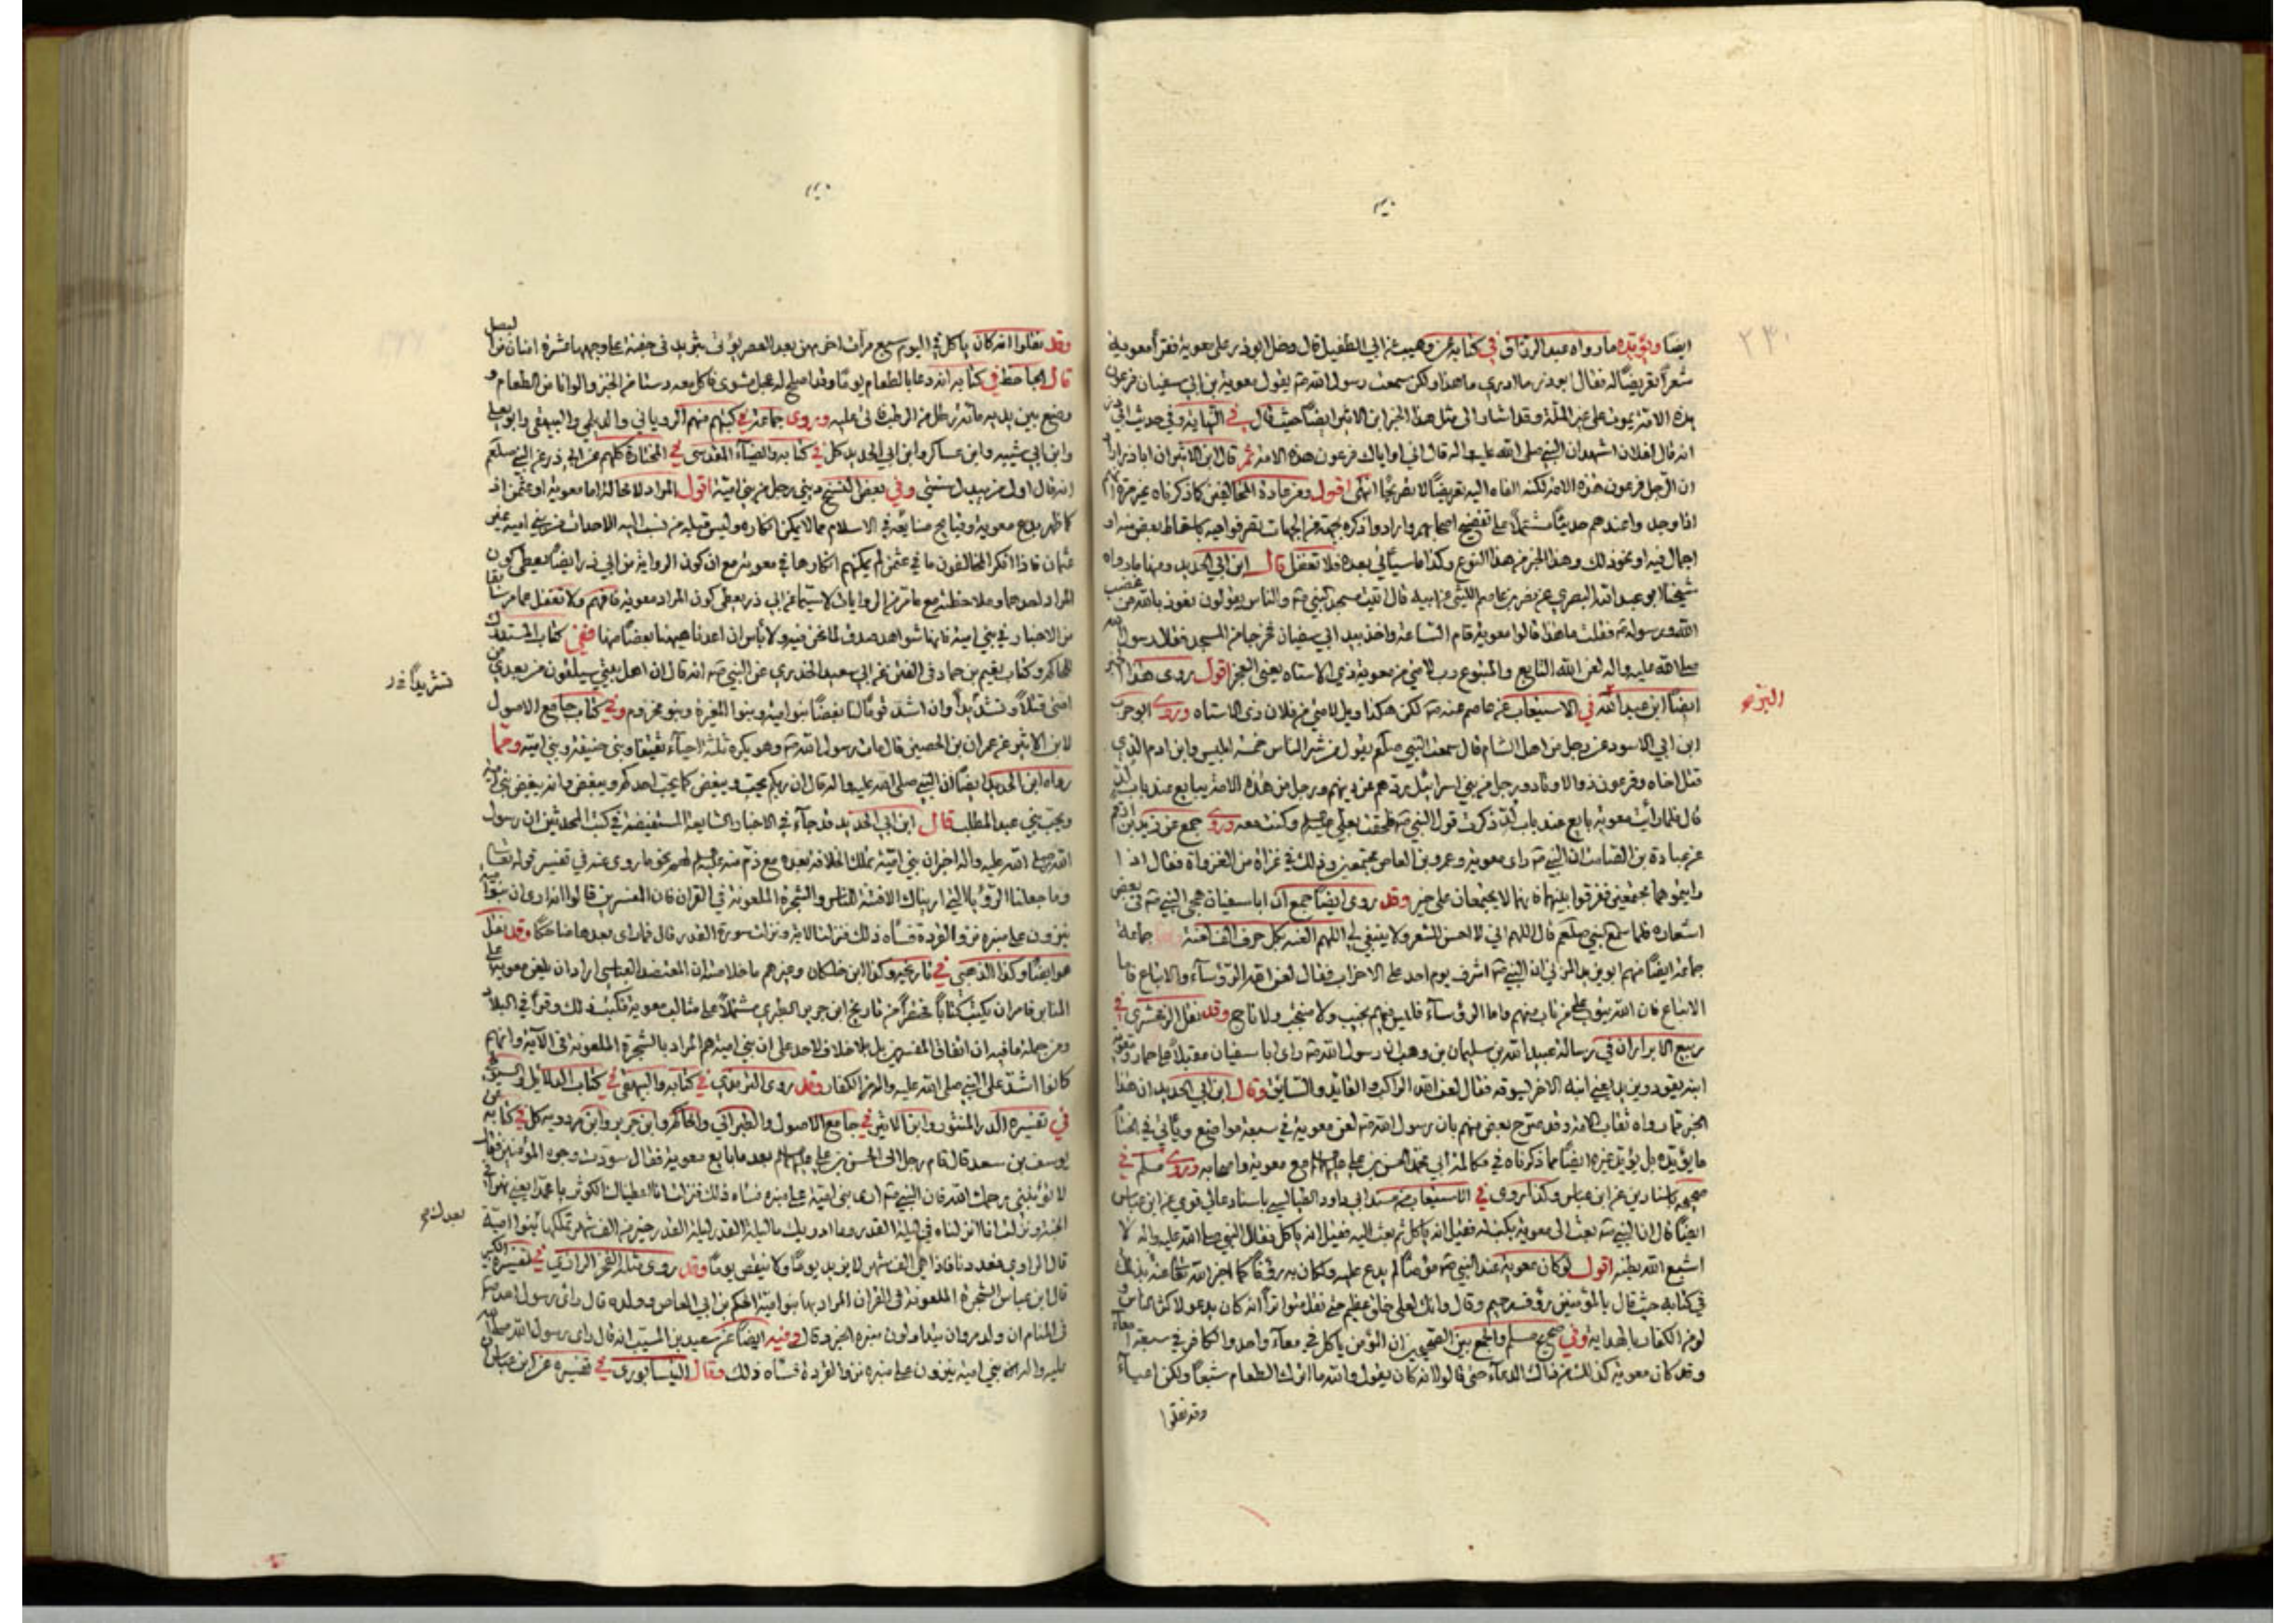 ٢٣٠
ايضا ويؤيده ما رواه عبد الرزاق في كتابه عن وهيب عن ابي الطفيل قال دخل ابو ذر على معوية فقرأ معوية
شعرا تعريضا له فقال ابو ذر ما ادري ما هذا ولكن سمعت رسول الله ص يقول معوية بن ابي سفيان فرعون
هذه الامة يموت على غير الملة وقد اشار الى مثل هذا الخبر ابن الاثير ايضا حيث قال في النهاية وفي حديث ابي ذر
انه قال لفلان اشهد ان النبي صلى الله عليه واله قال اني او اياك فرعون هذه الامة ثم قال ابن الاثير ان ابا ذر اراد
ان الرجل فرعون هذه الامة لكنه القاه اليه تعريضا لا تصريحا انتهى اقول ومن عادة المخالفين كما ذكرناه غير مرة انهم
اذا وجدوا عندهم حديثا مشتملا على تفضيح اصحابهم وارادوا ذكره بجهة من الجهات تصرفوا فيه باسقاط بعض منه او
اجمال فيه او نحو ذلك وهذا الخبر من هذا النوع وكذا ما سيأتي بعده فلا تغفل قال ابن ابي الحديد ومنها ما رواه
شيخنا ابو عبد الله البصري عن نصر بن عاصم الليثي عن ابيه قال اتيت مسجد النبي ص والناس يقولون نعوذ بالله من غضب
الله ورسوله ص فقلت ما هذا قالوا معوية قام الساعة واخذ بيد ابي سفيان فخرجا من المسجد فقال رسول الله
صلى الله عليه واله لعن الله التابع والمتبوع رب لامتي من معوية ذي الاستاه يعني العجز اقول روى هذا الخبر
ايضا ابن عبد الله في الاستيعاب عن عاصم عنه ص لكن هكذا ويل لامتي من فلان ذي الاستاه وروى ابو حرب
البر صح
ابن ابي الاسود عن رجل من اهل الشام قال سمعت النبي صلعم يقول من شر الناس خمسة ابليس وابن ادم الذي
قتل اخاه وفرعون ذو الاوتاد ورجل من بني اسرائيل يردهم عن دينهم ورجل من هذه الامة يبايع عند باب لد
قال فلما رأيت معوية بايع عند باب لد ذكرت قول النبي ص فلحقت بعلي وكنت معه وروى جمع عن زيد بن ارقم
عن عبادة بن الصامت ان النبي ص راى معوية وعمرو بن العاص مجتمعين وذلك في غزاة من الغزواة فقال اذا
رايتموهما مجتمعين ففرقوا بينهما فانهما لا يجتمعان على خير وقد روى ايضا جمع ان ابا سفيان هجى النبي ص في بعض
اشعاره فلما سمع النبي صلعم قال اللهم اني لا احسن الشعر ولا ينبغي لي اللهم العنه بكل حرف الف لعنة جماعة
جماعة ايضا منهم ان النبي ص اشرف يوم احد على الاحزاب فقال لعن الله الرؤساء والاتباع فاما
الاتباع فان الله يتوب على من تاب منهم واما الرؤساء فليس فيهم نجيب ولا منجب ولا ناج وقد نقل الزمخشري في
ربيع الابرار ان في رسالة عبيد الله بن سليمان بن وهب ان رسول الله ص راى ابا سفيان مقبلا على حمار ومعوية
ابنه يقوده ويزيد يعني ابنه الاخر يسوقه فقال لعن الله الراكب والقايد والسايق وقال ابن ابي الحديد ان هذا
الخبر مما رواه ثقات الامة وقد صرح بعض منهم بان رسول الله ص لعن معوية في سبعة مواضع ويأتي في
ما يؤيده بل يؤيد غيره ايضا مما ذكرناه في مكالمة ابي محمد الحسن بن علي مع معوية واصحابه وروى مسلم في
صحيحه باسنادين عن ابن عباس وكذا روى في الاستيعاب عن مسند ابي داود الطيالسي باسناد عالي قوي عن ابن عباس
ايضا قال ان النبي ص بعث الى معوية يكتب له فقيل انه ياكل ثم بعث اليه فقيل انه ياكل فقال النبي صلى الله عليه واله لا
اشبع الله بطنه اقول لو كان معوية عند النبي ص مؤمنا لم يدع عليه ولكان به رؤفا كما اخبر الله تعالى عنه بذلك
في كتابه حيث قال بالمؤمنين رؤف رحيم وقال وانك لعلى خلق عظيم حتى نقل متواترا انه كان يدعو لاكثر الناس و
لو من الكفار بالهداية وفي صحيح مسلم والجمع بين الصحيحين ان المؤمن ياكل في معآء واحد والكافر في سبعة امعآء
وقد كان معوية كذلك من ذلك الدعاء حتى قالوا انه كان يقول والله ما اترك الطعام شبعا ولكن اعياء
وقد نقلوا
وقد نقلوا انه كان ياكل في اليوم سبع مرات اخريهن بعد العصر يؤتى بثريد في جفنة على وجهها عشرة امنان من البصل
قال الجاحظ في كتابه انه دعا بالطعام يوما وقد اصلح له عجل مشوي فاكل معه دستا من الخبز والوانا من الطعام و
وضع بين يديه مائة رطل من الرطب فاتى عليه وروى جماعة في كتبهم منهم الروياني والديلمي والبيهقي وابو يعلى
وابن ابي شيبه وابن عساكر وابن ابي الحديد كل في كتابه والضيآء المقدسي في المختارة كلهم عن ابي ذر عن النبي صلعم
انه قال اول من يبدل سنتي وفي بعض النسخ ديني رجل من بني امية اقول المراد لا محالة اما معوية او عثمن اذ
كما ظهر بدع معوية وقبايح صنايعه في الاسلام مما لا يمكن انكاره وليس قبله من نسب اليه الاحداث من بني امية غير
عثمان فاذا انكر المخالفون ما في عثمن لم يمكنهم انكارها في معوية مع ان كون الرواية من ابي ذر ايضا يعطي كون
المراد احدهما وملاحظته مع ما مر من الروايات لا سيما عن ابي ذر يعطي كون المراد معوية فافهم ولا تغفل عما مر سابقا
من الاخبار في بني امية فانها شواهد صدق لما نحن فيه ولا بأس ان اعدنا هيهنا بعضا منها ففي كتاب المستدرك
للحاكم وكتاب نعيم بن حماد في الفتن عن ابي سعيد الخدري عن النبي ص انه قال ان اهل بيتي سيلقون من بعدي من
امتي قتلا وتشديدا وان اشد قومنا لنا بغضا بنو امية وبنو المغيرة وبنو مخزوم وفي كتاب جامع الاصول
تشريدا خ ر
لابن الاثير عن عمران بن الحصين قال مات رسول الله ص وهو يكره ثلثة احيآء ثقيفا وبني حنيفة وبني امية ومما
رواه ابن ابي الحديد ايضا ان النبي صلى الله عليه واله قال ان ربكم يحب ويبغض كما يحب احدكم ويبغض وانه يبغض بني امية
ويحب بني عبد المطلب قال ابن ابي الحديد قد جآء في الاخبار الشايعة المستفيضة في كتب المحدثين ان رسول
الله صلى الله عليه واله اخبر ان بني امية تملك الخلافة بعده مع ذم منه لهم نحو ما روى عنه في تفسير قوله تعالى
وما جعلنا الرؤيا التي اريناك الا فتنة للناس والشجرة الملعونة في القران فان المفسرين قالوا انه راى ان بنو امية
ينزون على منبره نزو القردة فسآه ذلك فنزلت الاية ونزلت سورة القدر قال فما راى بعدها ضاحكا وقد نقل
هو ايضا وكذا الذهبي في تاريخه وكذا ابن خلكان وغيرهم ما خلاصته ان المعتضد العباسي اراد ان يلعن معوية على
المنابر فامر ان يكتب كتابا مختصرا من تاريخ ابن جرير الطبري مشتملا على مثالب معوية فكتب ذلك وقرأ في البلاد
ومن جملة ما فيه ان اتفاق المفسرين بل بلا خلاف لاحد على ان بني امية هم المراد بالشجرة الملعونة في الآية وانهم
كانوا اشد على النبي صلى الله عليه واله من الكفار وقد روى الترمذي في كتابه والبيهقي في كتاب الدلائل والسيوطي
في تفسيره الدر المنثور وابن الاثير في جامع الاصول والطبراني والحاكم وابن جرير وابن مردويه كل في كتابه عن
يوسف بن سعد قال قام رجل الى الحسن بن علي بعد ما بايع معوية فقال سودت وجوه المؤمنين فقال
لا تؤنبني رحمك الله فان النبي ص ارى بني امية على منبره فسآه ذلك فنزلت انا اعطيناك الكوثر يا محمد يعني نهرا في
الجنة ونزلت انا انزلناه في ليلة القدر وما ادريك ما ليلة القدر ليلة القدر خير من الف شهر تملكها بنوا امية
بعدك صح
قال الراوي فعددنا فاذا هي الف شهر لا يزيد يوما ولا ينقص يوما وقد روى مثله الفخر الرازي في تفسيره الكبير
قال ابن عباس الشجرة الملعونة في القران المراد بها بنو امية الحكم بن ابي العاص وولده قال راى رسول الله ص
في المنام ان ولد مروان يتداولون منبره الخبر وقال وفيه ايضا عن سعيد بن المسيب انه قال راى رسول الله صلى الله
عليه واله بني امية ينزون على منبره نزو القردة فسآه ذلك وقال النيسابوري في تفسيره عن ابن عباس ان